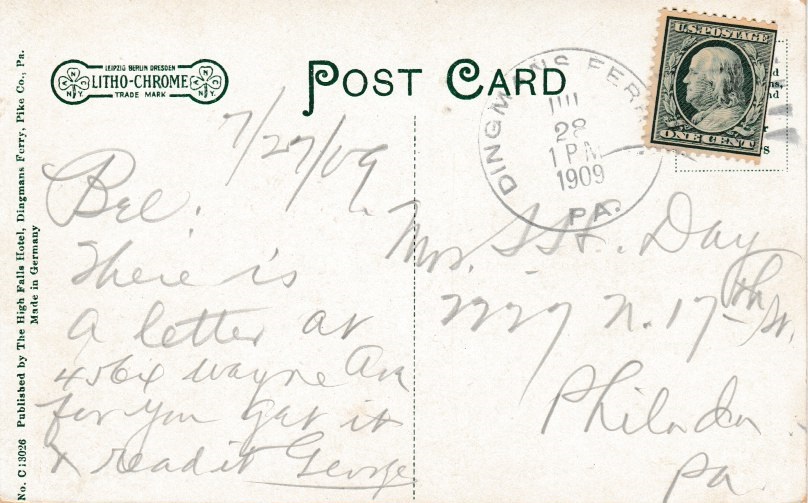 No. C 13026 Published by The High Falls Hotel, Dingmans Ferry, Pike Co., Pa.
Made in Germany
LEIPZIG BERLIN DRESDEN
LITHO-CHROME
TRADE MARK
N
Y
POST CARD
DINGMANS FERRY
28
1 PM
1909
PA.
U.S. POSTAGE
ONE CENT
7/27/09
There is
a letter at
Wayne Ave
for you get it
& read it George
Mrs. Day
N. 17th St.
Philada.
Pa.